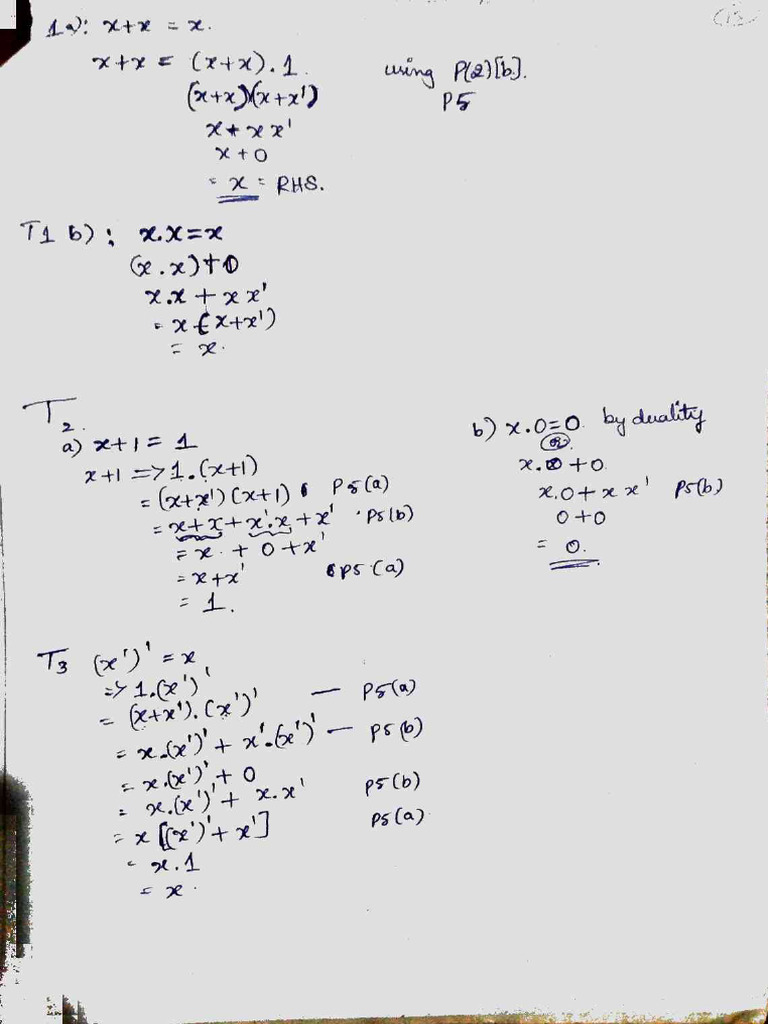 13
1a): x+x = x.
x+x = (x+x).1 using P(2)[b].
(x+x)(x+x') P5
x+xx'
x+0
= x = RHS.
T1 b): x.x=x
(x.x)+0
x.x + xx'
= x(x+x')
= x.
T2.
a) x+1 = 1
x+1 => 1.(x+1)
= (x+x')(x+1) P5(a)
= x+x+x'.x+x' P5(b)
= x + 0 + x'
= x+x' P5(a)
= 1.
b) x.0=0. by duality
x.0+0.
x.0+xx' P5(b)
0+0
= 0.
T3 (x')' = x
=> 1.(x')'
= (x+x').(x')' — P5(a)
= x.(x')' + x'.(x')' — P5(b)
= x.(x')' + 0
= x.(x')' + x.x' P5(b)
= x[(x')'+x'] P5(a)
= x.1
= x.